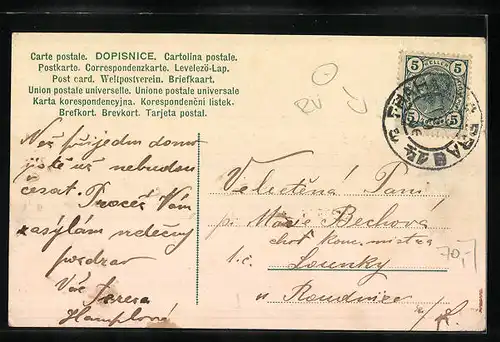 Carte postale. DOPISNICE. Cartolina postale.
Postkarte. Correspondenzkarte. Levelező-Lap.
Post card. Weltpostverein. Briefkaart.
Union postale universelle. Unione postale universale
Karta korespondencyjna. Korespondenční listek.
Brefkort. Brevkort. Tarjeta postal.
5 5
HELLER HELLER
5 5
PRAG
Než přijedem domů
jistě už nebudou
česat. Pročež Vám
zasýlám vděčný
pozdrav
Vaše
Hamplová
Velectěná Paní
pí. Marie Bechová
choť kom. mistra
t.č. Lounky
u Roudnice
70,-